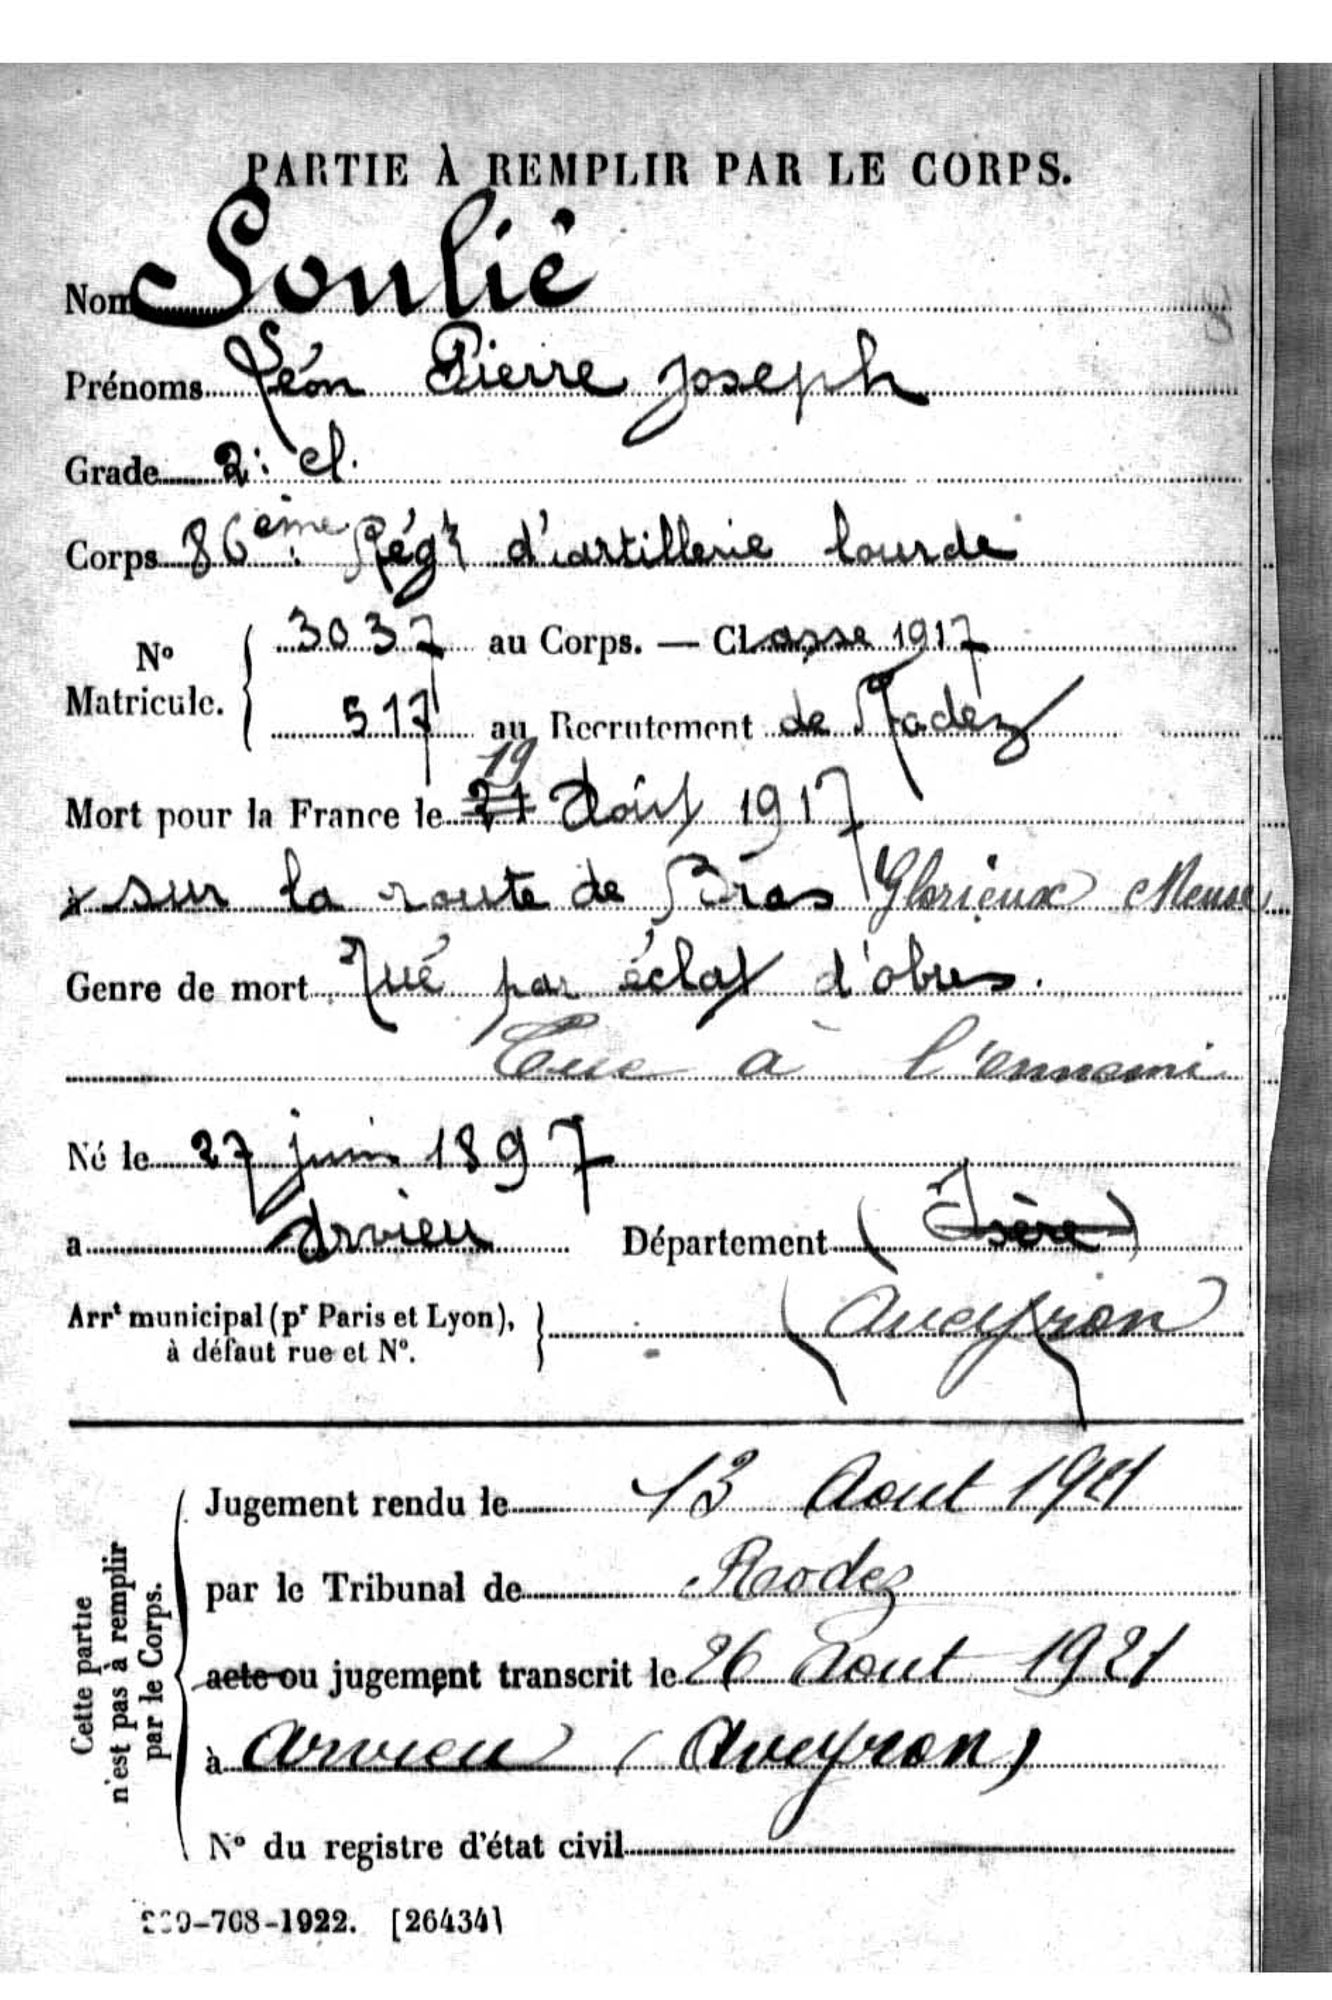 PARTIE À REMPLIR PAR LE CORPS.
Nom Soulié
Prénoms Léon Pierre Joseph
Grade 2e cl.
Corps 86ème Régt d'artillerie lourde
No Matricule. { 3037 au Corps. — Cl asse 1917
517 au Recrutement de Rodez
19
Mort pour la France le 21 Août 1917
à sur la route de Bras Glorieux Meuse
Genre de mort Tué par éclat d'obus.
Tué à l'ennemi
Né le 27 juin 1897
a Arvieu Département (Isère)
Arrt municipal (pr Paris et Lyon), à défaut rue et No. } (Aveyron)
Cette partie n'est pas à remplir par le Corps.
Jugement rendu le 13 Aout 1921
par le Tribunal de Rodez
acte ou jugement transcrit le 26 Aout 1921
à Arvieu (Aveyron)
No du registre d'état civil
-708-1922. [26434]